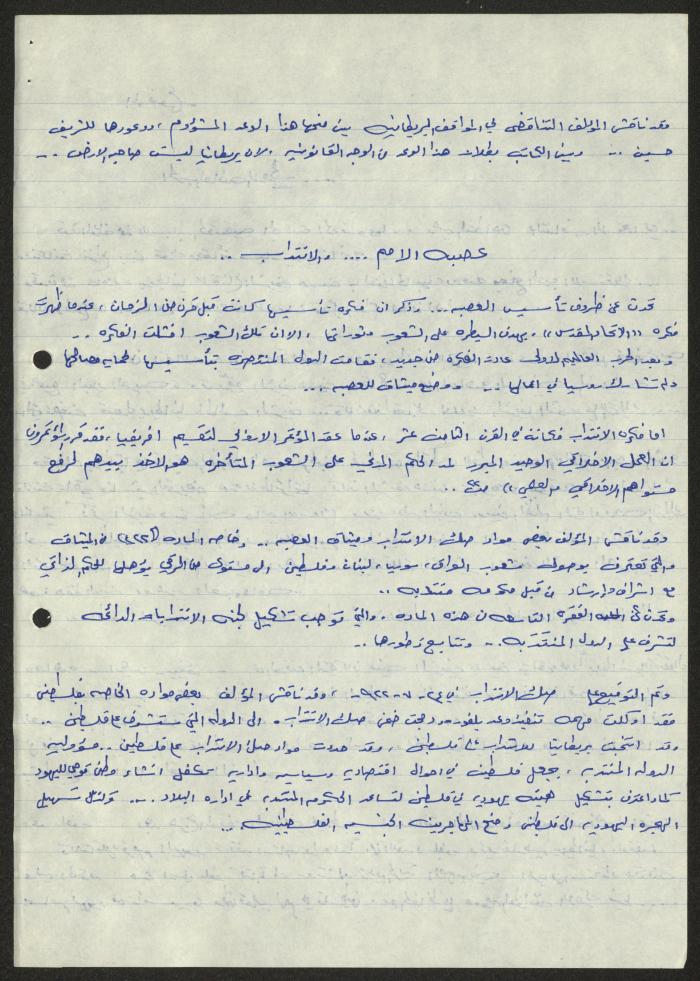 وقد ناقش المؤلف التناقض في المواقف البريطانية بين منحها هذا الوعد المشؤوم، ووعودها للشريف
حسين .. وبين الكاتب بطلان هذا الوعد من الوجه القانونية، لان بريطانيا ليست صاحبة الارض ...
عصبة الامم .... والانتداب ..
تحدث عن ظروف تأسيس العصبة ... وذكر ان فكرة تأسيسها كانت قبل قرن من الزمان، عندما ظهرت
فكرة ((الاتحاد المقدس))، بهدف السيطرة على الشعوب وثوراتها، الا ان تلك الشعوب افشلت الفكرة ..
وبعد الحرب العالمية الاولى عادت الفكرة من جديد، فقامت الدول المنتصرة بتأسيسها لحماية مصالحها
ولم تشارك روسيا في اعمالها .. ووضع ميثاق للعصبة ...
اما فكرة الانتداب فكانت في القرن الثامن عشر، عندما عقد المؤتمر الاوروبي لتقسيم افريقيا، فقد قرر المؤتمرون
ان العمل الاخلاقي الوحيد المبرر لمد الحكم المدني على الشعوب المتأخرة هو الاخذ بيدهم لرفع
مستواهم الاخلاقي ..
وقد ناقش المؤلف بعض مواد صك الانتداب وميثاق العصبة .. وخاصة المادة (٢٢) من الميثاق
والتي تعترف بوصول شعوب العراق، سوريا، لبنان وفلسطين الى مستوى من الرقي يؤهلها للحكم الذاتي
مع اشراف وارشاد من قبل حكومة منتدبة ..
وتحدث عن الفقرة التاسعة من هذه المادة. والتي توجب تشكيل لجنة الانتدابات الدائمة
لتشرف على الدول المنتدبة .. وتتابع تطورها ..
وتم التوقيع على صك الانتداب في ٢٤-٧-١٩٢٢، وقد ناقش المؤلف بعض مواده الخاصة بفلسطين
فقد اوكلت مهمة تنفيذ وعد بلفور ضمن صك الانتداب. الى الدولة التي ستشرف على فلسطين ..
وقد انتخبت بريطانيا للانتداب على فلسطين، وقد حددت مواد صك الانتداب على فلسطين .. مسؤولية
الدولة المنتدبة، بجعل فلسطين في احوال اقتصادية وسياسية وادارية تكفل انشاء وطن قومي لليهود
كما واعترف بتشكيل هيئة يهودية في فلسطين لتساعد الحكومة المنتدبة في ادارة البلاد .... وكذلك تسهيل
الهجرة اليهودية الى فلسطين ومنح المهاجرين الجنسية الفلسطينية ...